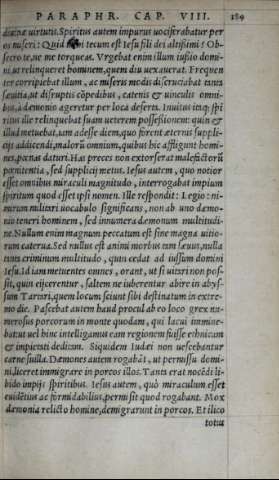 PARAPHR. CAP. VIII. 289
diuinæ uirtutis. Spiritus autem impurus uociferabatur per
os miseri: Quid mihi tecum est Iesu fili dei altissimi? Ob-
secro te, ne me torqueas. Vrgebat enim illum iussio domi-
ni, ut relinqueret hominem, quem diu uexauerat. Frequen
ter corripiebat illum, ac miseris modis discruciabat tanta
sæuitia, ut disruptis cōpedibus, catenis & uinculis omni-
bus, à dæmonio ageretur per loca deserta. Inuitus itaq; spi
ritus ille relinquebat suam ueterem possessionem: quin &
illud metuebat, iam adesse diem, quo forent æternis supplicijs
addicendi, malorū omnium, quibus hic affligunt homi-
nes, pœnas daturi. Has preces non extorserat malefictorū
pœnitentia, sed supplicij metus. Iesus autem, quo notior
esset omnibus miraculi magnitudo, interrogabat impium
spiritum quod esset ipsi nomen. Ille respondit: Legio: ni-
mirum militari uocabulo significans, non ab uno dæmo-
nio teneri hominem, sed innumera dæmonum multitudi-
ne. Nullum enim magnum peccatum est sine magna uitio-
rum caterua. Sed nullus est animi morbus tam sæuus, nulla
tanta criminum multitudo, quin cedat ad iussum domini
Iesu. Id iam metuentes omnes, orant, ut si uitari non pos-
sit, quin eijcerentur, saltem ne iuberentur abire in abys-
sum Tartari, quem locum sciunt sibi destinatum in extre-
mo die. Pascebat autem haud procul ab eo loco grex nu-
merosus porcorum in monte quodam, qui lacui immine-
bat: ut uel hinc intelligamus eam regionem fuisse ethnicam
& impietati deditam. Siquidem Iudæi non uescebantur
carne suilla. Dæmones autem rogabāt, ut permissu domi-
ni, liceret immigrare in porcos illos. Tanta erat nocēdi li-
bido impijs spiritibus. Iesus autem, quò miraculum esset
euidētius ac formidabilius, permisit quod rogabant. Mox
dæmonia relicto homine, demigrarunt in porcos. Et ilico
totus